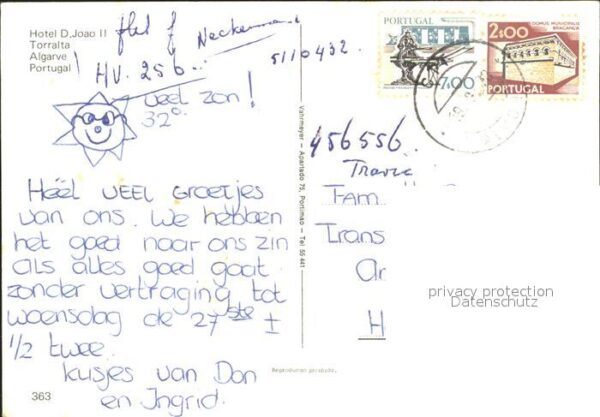 Hotel D, Joao II
Torralta
Algarve
Portugal
Neckermann
HV. 256
5110432
veel zon!
32°
Héél VEEL Groetjes
van ons. We hebben
het goed naar ons zin
als alles goed gaat
zonder vertraging tot
woensdag de 27ste ±
1/2 twee.
kusjes van Don
en Ingrid.
363
Vahrmeyer - Apartado 75, Portimao - Tel 55 441
Reproducao proibida.
PORTUGAL
7.00
DOMUS MUNICIPALIS
BRAGANÇA
2$00
PORTUGAL
456556
Fam
Trans
Ar
H
privacy protection
Datenschutz